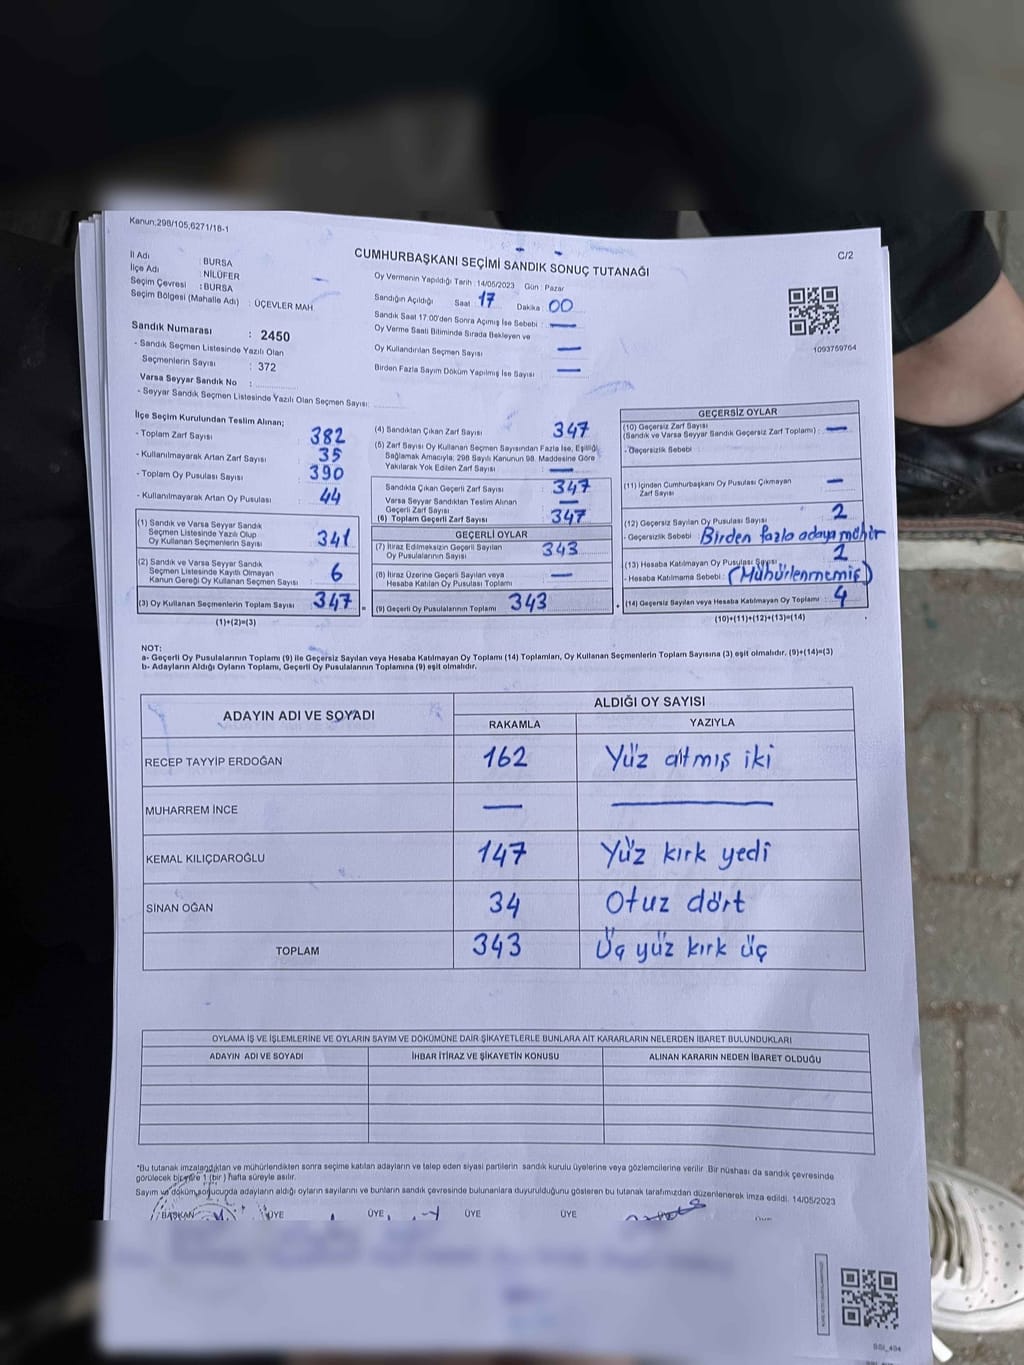 Kanun;298/105,6271/18-1
C/2
CUMHURBAŞKANI SEÇİMİ SANDIK SONUÇ TUTANAĞI
İl Adı : BURSA
İlçe Adı : NİLÜFER
Seçim Çevresi : BURSA
Seçim Bölgesi (Mahalle Adı) : ÜÇEVLER MAH
Sandık Numarası : 2450
- Sandık Seçmen Listesinde Yazılı Olan
Seçmenlerin Sayısı : 372
Varsa Seyyar Sandık No :
- Seyyar Sandık Seçmen Listesinde Yazılı Olan Seçmen Sayısı:
Oy Vermenin Yapıldığı Tarih :14/05/2023 Gün : Pazar
Sandığın Açıldığı Saat : 17 Dakika : 00
Sandık Saat 17.00'den Sonra Açımış İse Sebebi : —
Oy Verme Saati Bitiminde Sırada Bekleyen ve
Oy Kullandırılan Seçmen Sayısı —
Birden Fazla Sayım Döküm Yapılmış İse Sayısı : —
1093759764
İlçe Seçim Kurulundan Teslim Alınan;
- Toplam Zarf Sayısı 382
- Kullanılmayarak Artan Zarf Sayısı 35
- Toplam Oy Pusulası Sayısı 390
- Kullanılmayarak Artan Oy Pusulası 44
(1) Sandık ve Varsa Seyyar Sandık
Seçmen Listesinde Yazılı Olup
Oy Kullanan Seçmenlerin Sayısı 341
(2) Sandık ve Varsa Seyyar Sandık
Seçmen Listesinde Kayıtlı Olmayan
Kanun Gereği Oy Kullanan Seçmen Sayısı 6
(3) Oy Kullanan Seçmenlerin Toplam Sayısı 347
(1)+(2)=(3)
(4) Sandıktan Çıkan Zarf Sayısı 347
(5) Zarf Sayısı Oy Kullanan Seçmen Sayısından Fazla İse, Eşitliği
Sağlamak Amacıyla, 298 Sayılı Kanunun 98. Maddesine Göre
Yakılarak Yok Edilen Zarf Sayısı —
Sandıkta Çıkan Geçerli Zarf Sayısı 347
Varsa Seyyar Sandıktan Teslim Alınan
Geçerli Zarf Sayısı —
(6) Toplam Geçerli Zarf Sayısı 347
GEÇERLİ OYLAR
(7) İtiraz Edilmeksizin Geçerli Sayılan
Oy Pusulalarının Sayısı 343
(8) İtiraz Üzerine Geçerli Sayılan veya
Hesaba Katılan Oy Pusulası Toplamı —
(9) Geçerli Oy Pusulalarının Toplamı 343
GEÇERSİZ OYLAR
(10) Geçersiz Zarf Sayısı
(Sandık ve Varsa Seyyar Sandık Geçersiz Zarf Toplamı) : —
- Geçersizlik Sebebi :
(11) İçinden Cumhurbaşkanı Oy Pusulası Çıkmayan
Zarf Sayısı —
(12) Geçersiz Sayılan Oy Pusulası Sayısı 2
- Geçersizlik Sebebi : Birden fazla adaya mühür
(13) Hesaba Katılmayan Oy Pusulası Sayısı 2
- Hesaba Katılmama Sebebi : (Mühürlenmemiş)
(14) Geçersiz Sayılan veya Hesaba Katılmayan Oy Toplamı 4
(10)+(11)+(12)+(13)=(14)
NOT:
a- Geçerli Oy Pusulalarının Toplamı (9) ile Geçersiz Sayılan veya Hesaba Katılmayan Oy Toplamı (14) Toplamları, Oy Kullanan Seçmenlerin Toplam Sayısına (3) eşit olmalıdır. (9)+(14)=(3)
b- Adayların Aldığı Oyların Toplamı, Geçerli Oy Pusulalarının Toplamına (9) eşit olmalıdır.
ADAYIN ADI VE SOYADI ALDIĞI OY SAYISI
RAKAMLA YAZIYLA
RECEP TAYYİP ERDOĞAN 162 Yüz altmış iki
MUHARREM İNCE — —
KEMAL KILIÇDAROĞLU 147 Yüz kırk yedi
SİNAN OĞAN 34 Otuz dört
TOPLAM 343 Üç yüz kırk üç
OYLAMA İŞ VE İŞLEMLERİNE VE OYLARIN SAYIM VE DÖKÜMÜNE DAİR ŞİKAYETLERLE BUNLARA AİT KARARLARIN NELERDEN İBARET BULUNDUKLARI
ADAYIN ADI VE SOYADI İHBAR İTİRAZ VE ŞİKAYETİN KONUSU ALINAN KARARIN NEDEN İBARET OLDUĞU
*Bu tutanak imzalandıktan ve mühürlendikten sonra seçime katılan adayların ve talep eden siyasi partilerin sandık kurulu üyelerine veya gözlemcilerine verilir. Bir nüshası da sandık çevresinde
görülecek bir yere 1 (bir) hafta süreyle asılır.
Sayım ve döküm sonucunda adayların aldığı oyların sayılarını ve bunların sandık çevresinde bulunanlara duyurulduğunu gösteren bu tutanak tarafımızdan düzenlenerek imza edildi. 14/05/2023
BAŞKAN ÜYE ÜYE ÜYE ÜYE